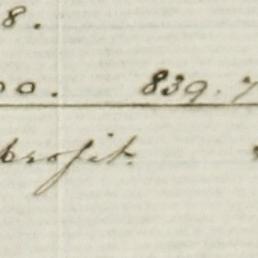 8.
00. 839.7
profit.